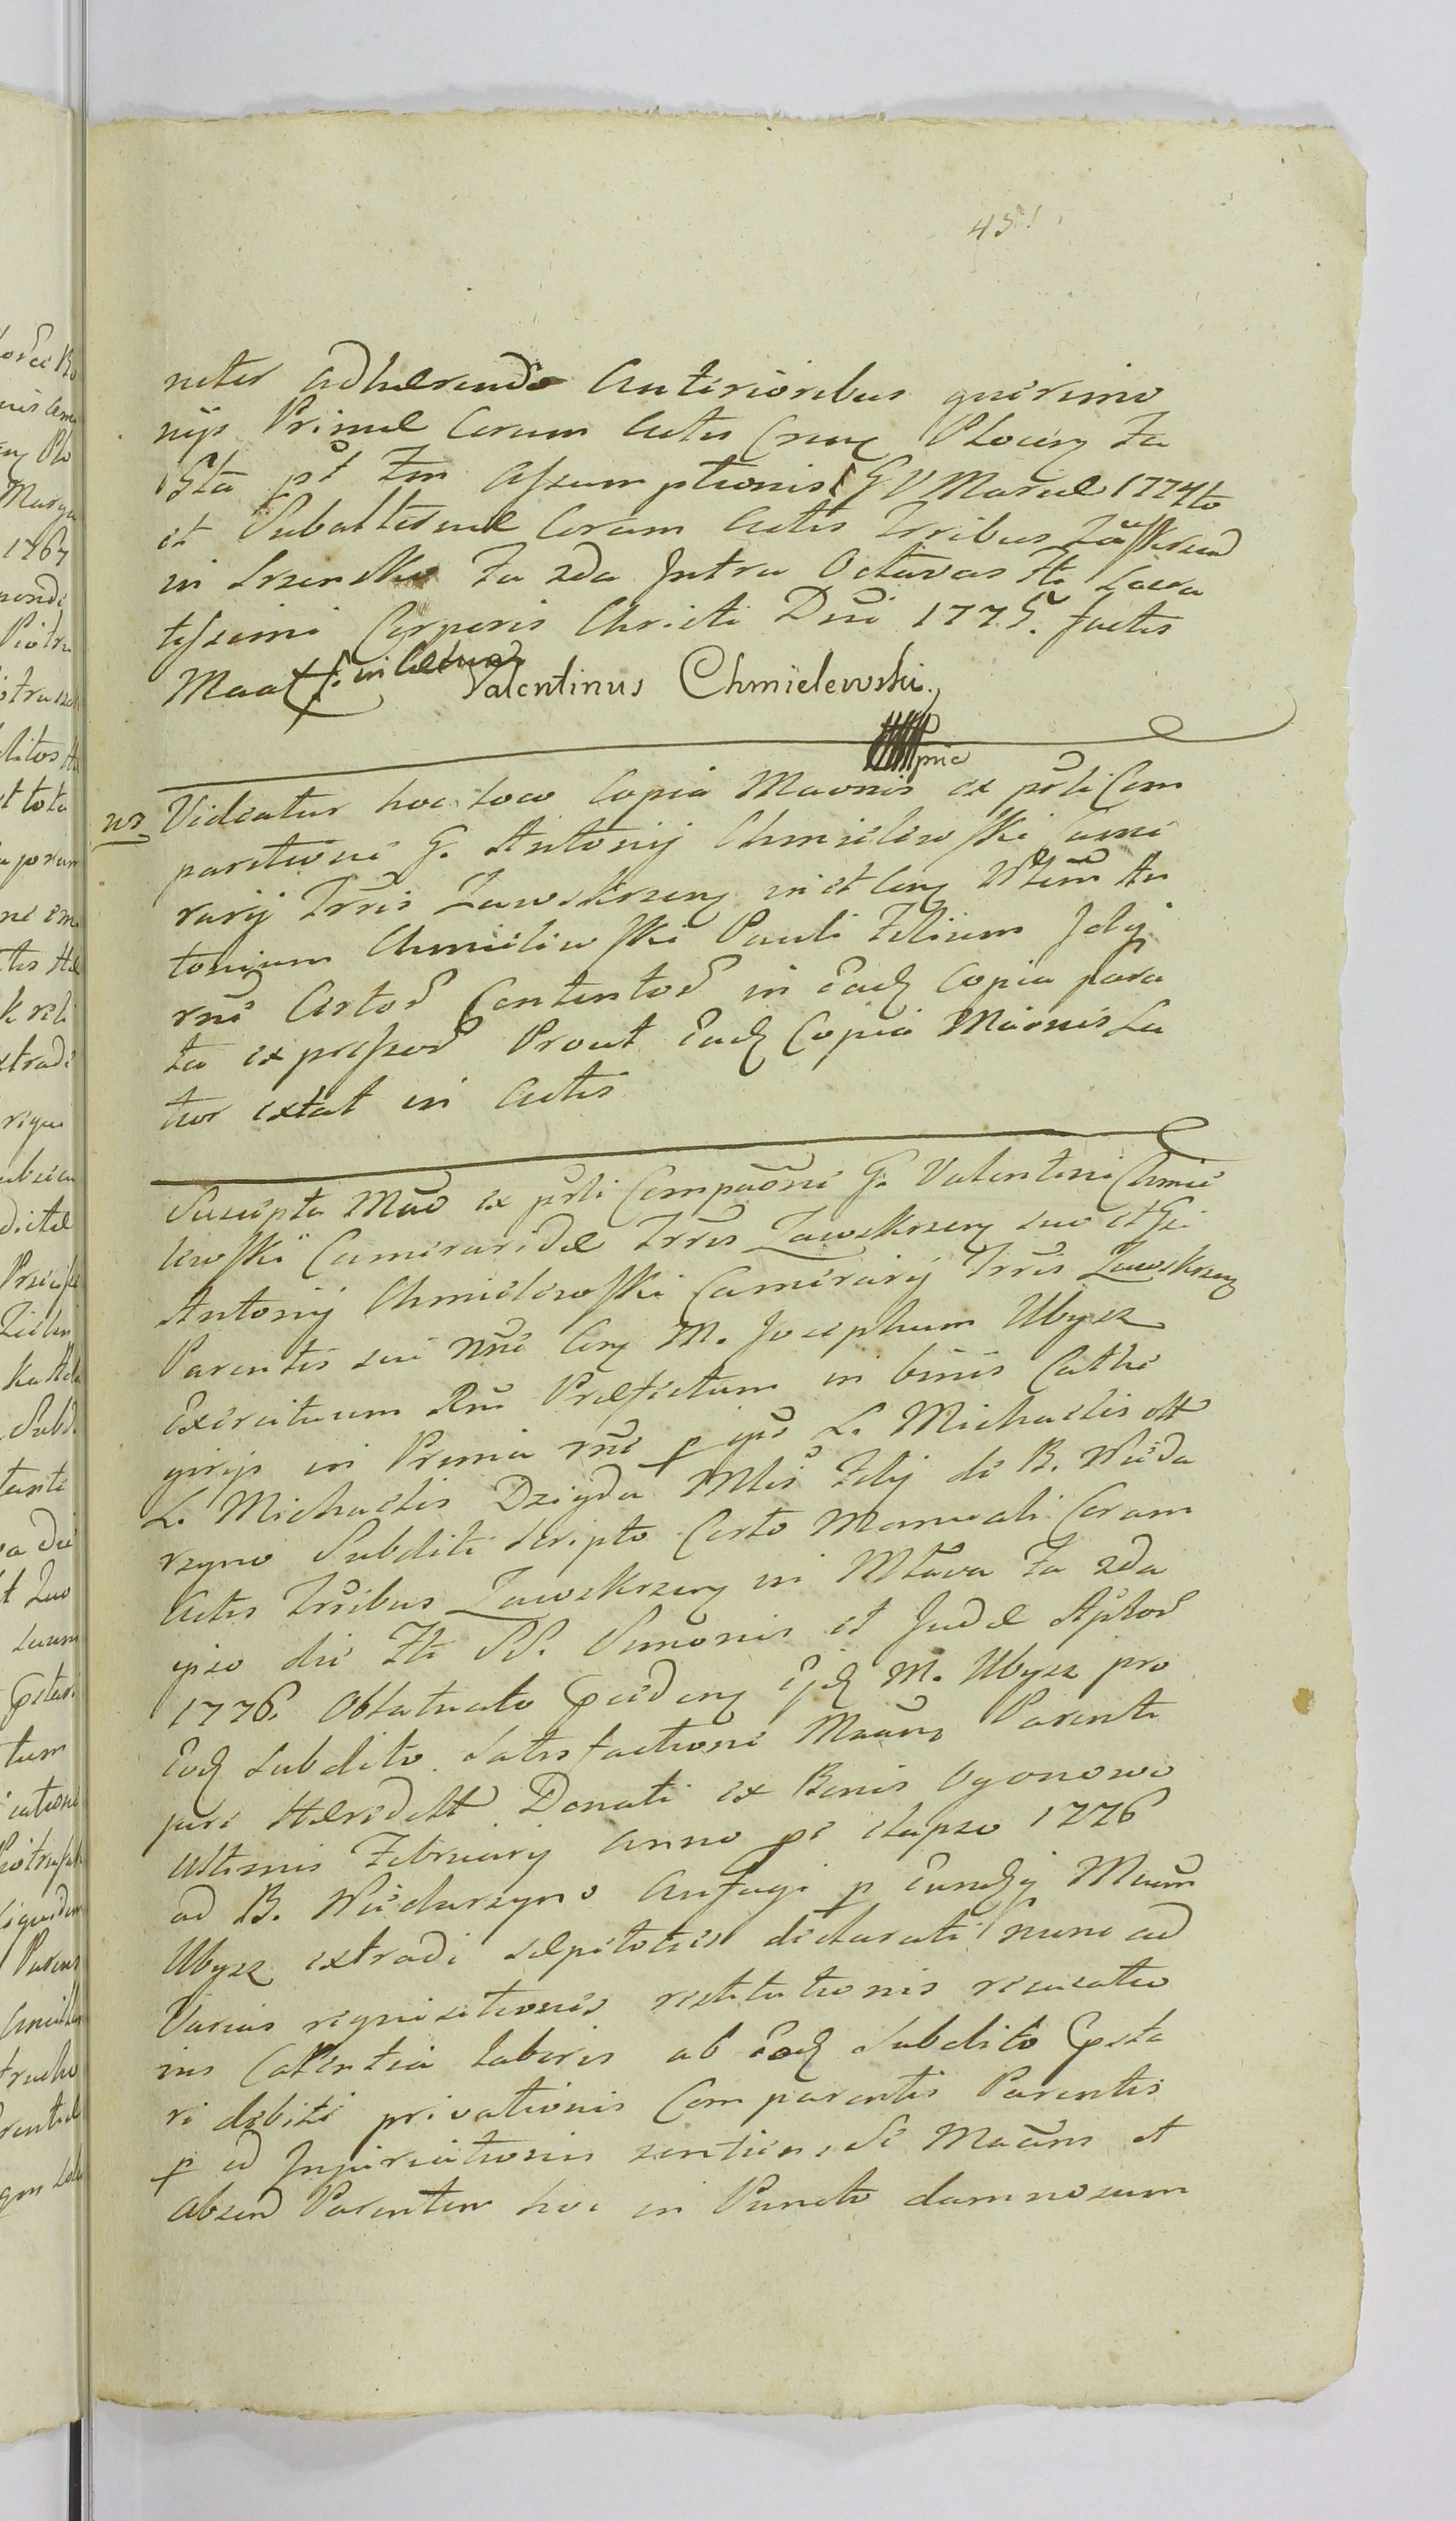 451
neter adhaerendo Anterioribus querimo
nijs Primae Coram Actis Cren Plocen Fa
6ta pt Ftm Assumptionis G V Mariae 1774to
et Subalternae Coram Actis Trribus Zaskrzen
in Srzensko Fa 2da Intra Octavas Sti Sacra
tissimi Corporis Christi Dni 1775. factis
Maat Valentinus Chmielewski.
mp
Videatur hoc loco Copia Maonis ex psti Com
paritione G. Antonij Chmielewski Came
rarij Trris Zawskrzen in et Con
tonium Chmielewski Pauli Filium In
rne Certor Contentor in Ead Copia para
ta expressor Prout Ead Copia Maonis La
tior extat in Actis
Suscepta Mao ex psti Compaone G. Valentini Chmie
lewski Cameraridae Trris Zawskrzen suo et G.
Antonij Chmielewski Camerarij Trris Zawskrzen
Parentis sui nne Con M. Josephum Ubysz
Exercituum Rni Praefectum in binis Cathe
gorijs in Prima rne p L. Michaelis ol
L. Michaelis Dzigda Filij de B. Wieda
rzyno Subditi Scripto Certo Manuali Coram
Actis Trribus Zawskrzen in Mlava Fa 2da
ipso die Fti SS. Simonis et Judae Aplor
1776. Oblatuato M. Ubysz pro
Eod Subdito Satisfactione Parenti
jure Donati ex Bonis Ogonowo
ultimis Februarij Anno elapso 1776
ad B. Wiedarzyno Aufugi p Eund Maum
Ubysz extradi saepitoties declarati nunc ad
Varias requisitiones restitutionis recusatio
nis Carentia laboris ab Eod Subdito
ri debiti privationis Comparentis Parentis
p id Injuriationis sentien, Se Maum et
absen Parentem hoc in Puncto damnosum